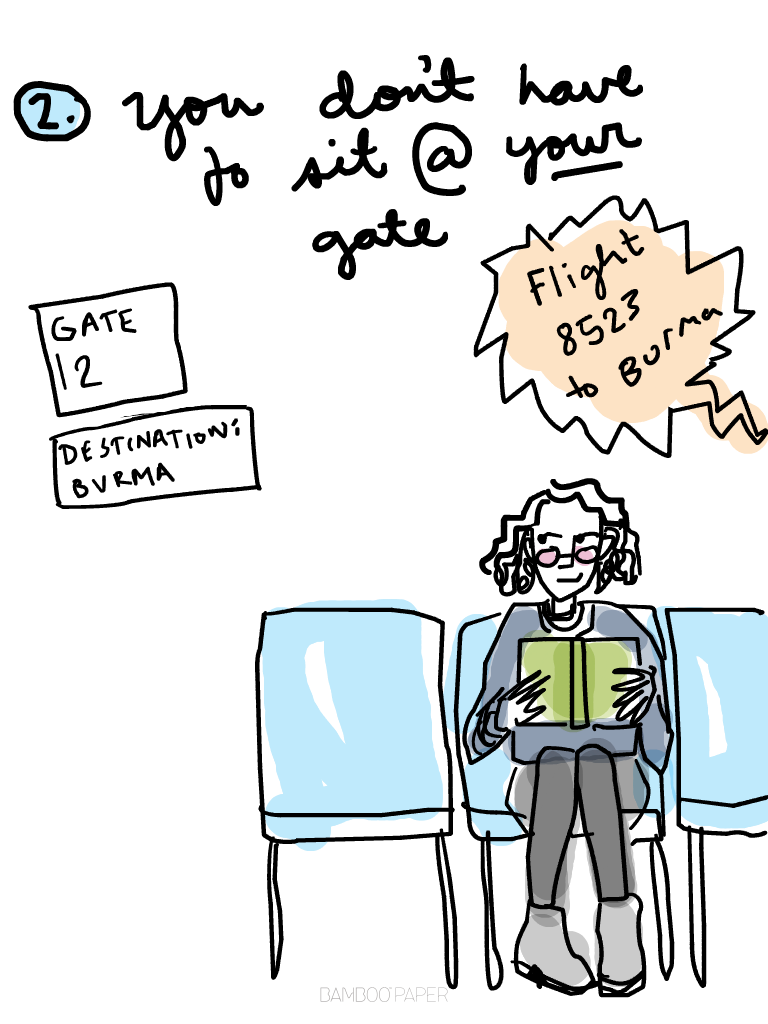 2. you don't have
to sit @ your
gate
Flight
8523
to Burma
GATE
12
DESTINATION:
BURMA
BAMBOO PAPER